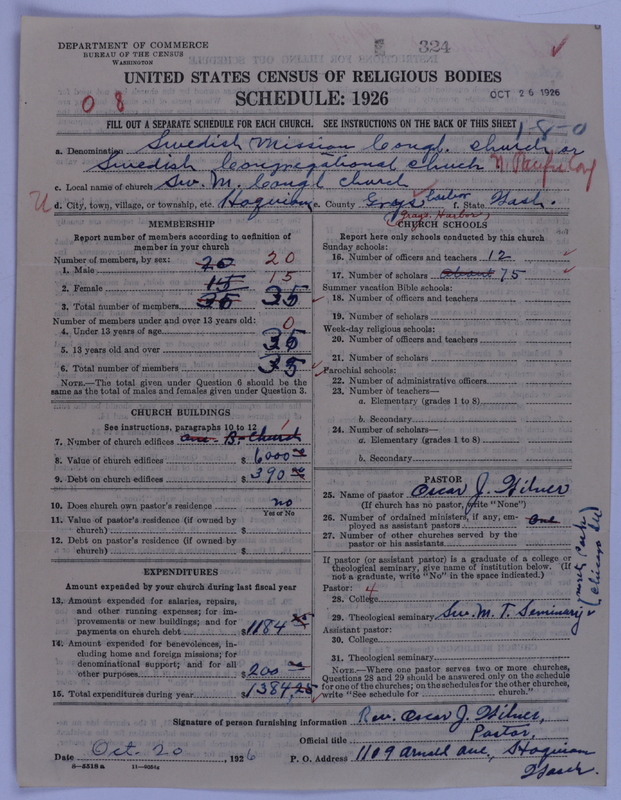 324
DEPARTMENT OF COMMERCE
BUREAU OF THE CENSUS
WASHINGTON
UNITED STATES CENSUS OF RELIGIOUS BODIES
SCHEDULE: 1926
OCT 26 1926
0 8
FILL OUT A SEPARATE SCHEDULE FOR EACH CHURCH. SEE INSTRUCTIONS ON THE BACK OF THIS SHEET
1-8-0
a. Denomination Swedish Mission Congl. church or
Swedish Congregational church
c. Local name of church Sw. M. Congl church
d. City, town, village, or township, etc. Hoquiam e. County Grays harbor f. State Wash.
(Grays Harbor)
MEMBERSHIP
Report number of members according to definition of
member in your church
Number of members, by sex:
1. Male 20 20
2. Female 15 15
3. Total number of members 35 35
Number of members under and over 13 years old:
4. Under 13 years of age 0
5. 13 years old and over 35
6. Total number of members 35
NOTE.—The total given under Question 6 should be the
same as the total of males and females given under Question 3.
CHURCH BUILDINGS
See instructions, paragraphs 10 to 12
7. Number of church edifices one B. Church 1
8. Value of church edifices $ 6000
9. Debt on church edifices $ 390
10. Does church own pastor's residence no
Yes or No
11. Value of pastor's residence (if owned by
church) $
12. Debt on pastor's residence (if owned by
church) $
EXPENDITURES
Amount expended by your church during last fiscal year
13. Amount expended for salaries, repairs,
and other running expenses; for im-
provements or new buildings; and for
payments on church debt $1184 25
14. Amount expended for benevolences, in-
cluding home and foreign missions; for
denominational support; and for all
other purposes $200
15. Total expenditures during year $1384,25
CHURCH SCHOOLS
Report here only schools conducted by this church
Sunday schools:
16. Number of officers and teachers 12
17. Number of scholars about 75
Summer vacation Bible schools:
18. Number of officers and teachers
19. Number of scholars
Week-day religious schools:
20. Number of officers and teachers
21. Number of scholars
Parochial schools:
22. Number of administrative officers
23. Number of teachers—
a. Elementary (grades 1 to 8)
b. Secondary
24. Number of scholars—
a. Elementary (grades 1 to 8)
b. Secondary
PASTOR
25. Name of pastor Oscar J.
(If church has no pastor, write "None")
26. Number of ordained ministers, if any, em-
ployed as assistant pastors one
27. Number of other churches served by the
pastor or his assistants
If pastor (or assistant pastor) is a graduate of a college or
theological seminary, give name of institution below. (If
not a graduate, write "No" in the space indicated.)
Pastor: 4
28. College
29. Theological seminary Sw. M. T. Seminary
(north park
Chicago Ill)
Assistant pastor:
30. College
31. Theological seminary
NOTE.—Where one pastor serves two or more churches,
Questions 28 and 29 should be answered only on the schedule
for one of the churches; on the schedules for the other churches,
write "See schedule for church."
Signature of person furnishing information Rev. Oscar J.
Official title Pastor,
Date Oct. 20, 1926 P. O. Address 1109 Arnold ave, Hoquiam
Wash.
8-5318 a